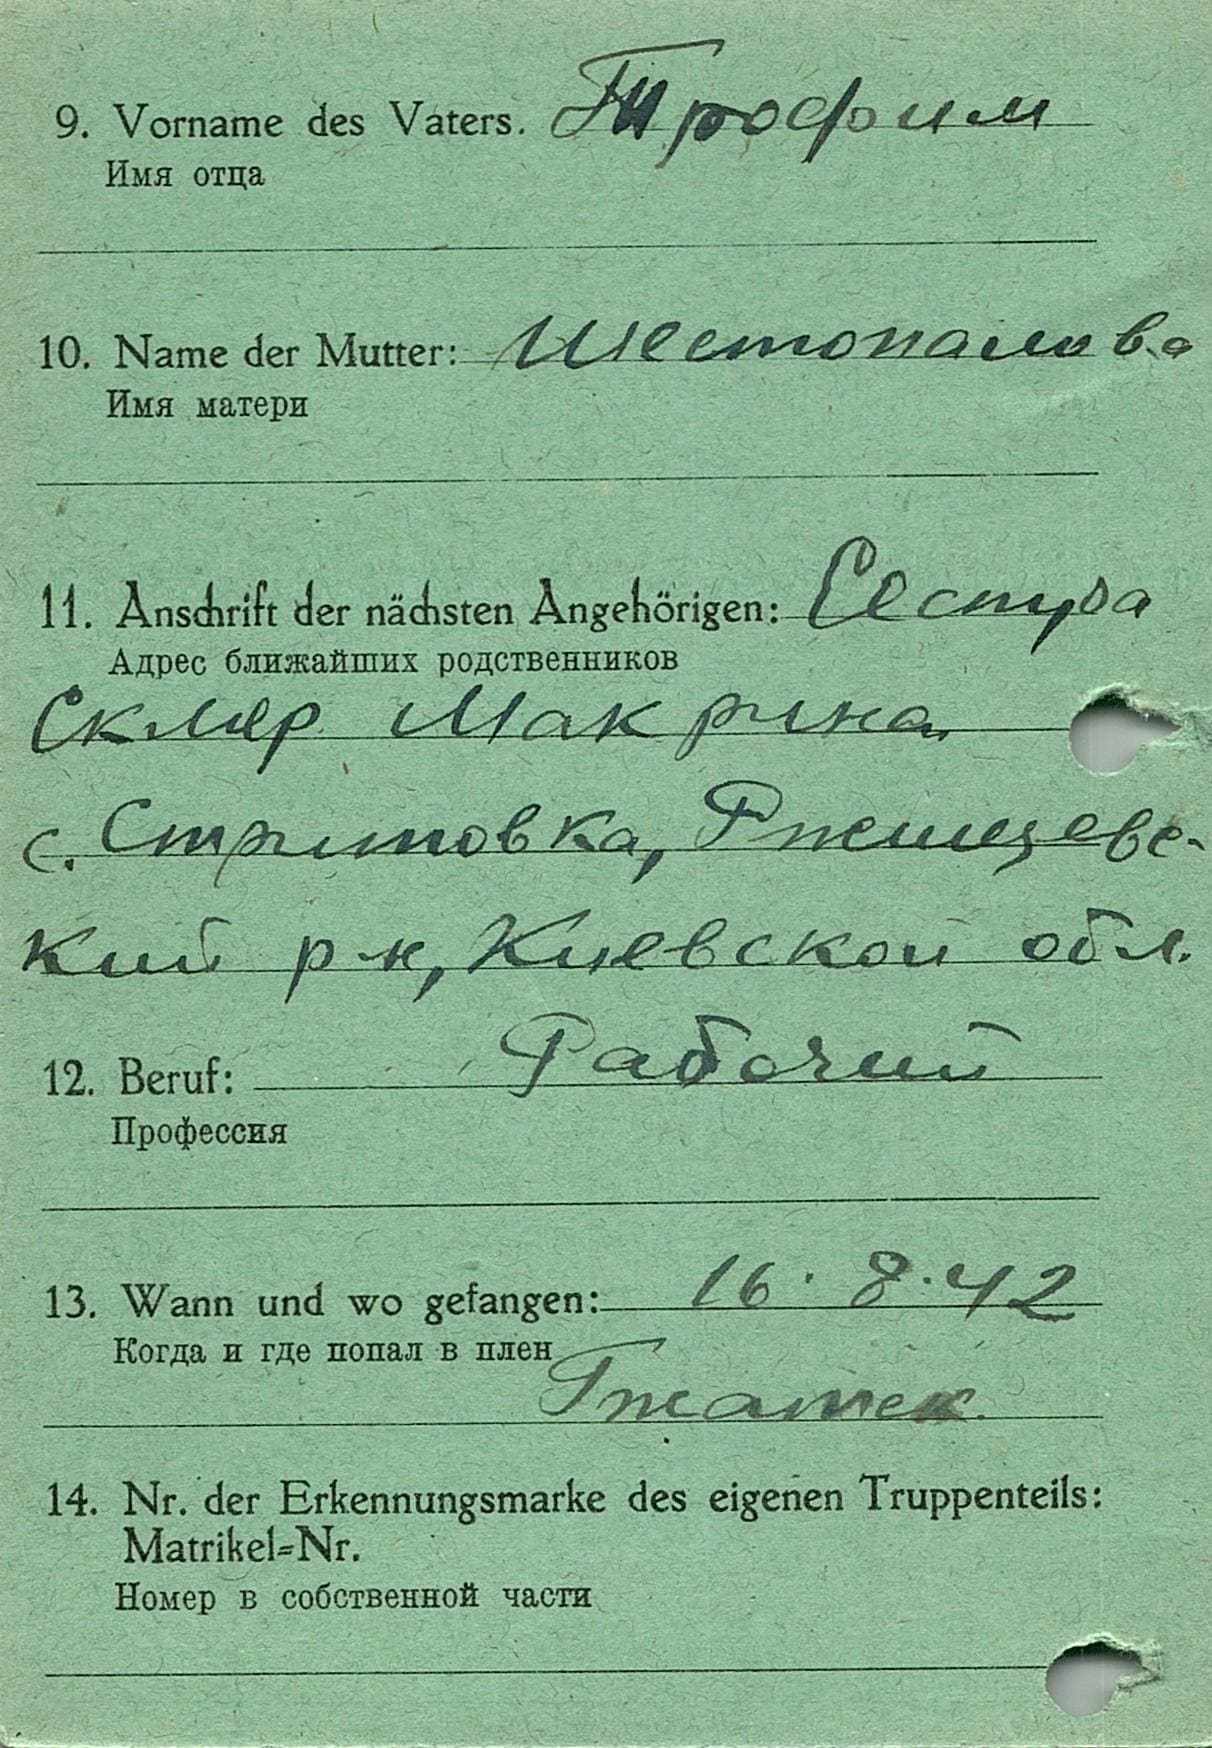 9. Vorname des Vaters. Трофим
Имя отца
10. Name der Mutter: Шестопалова
Имя матери
11. Anschrift der nächsten Angehörigen: Сестра
Адрес ближайших родственников
Скляр Макрина
с. Стритовка, Ржищевс-
кий р-н, Киевской обл.
12. Beruf: Рабочий
Профессия
13. Wann und wo gefangen: 16.8.42
Когда и где попал в плен
Гжатск.
14. Nr. der Erkennungsmarke des eigenen Truppenteils:
Matrikel=Nr.
Номер в собственной части